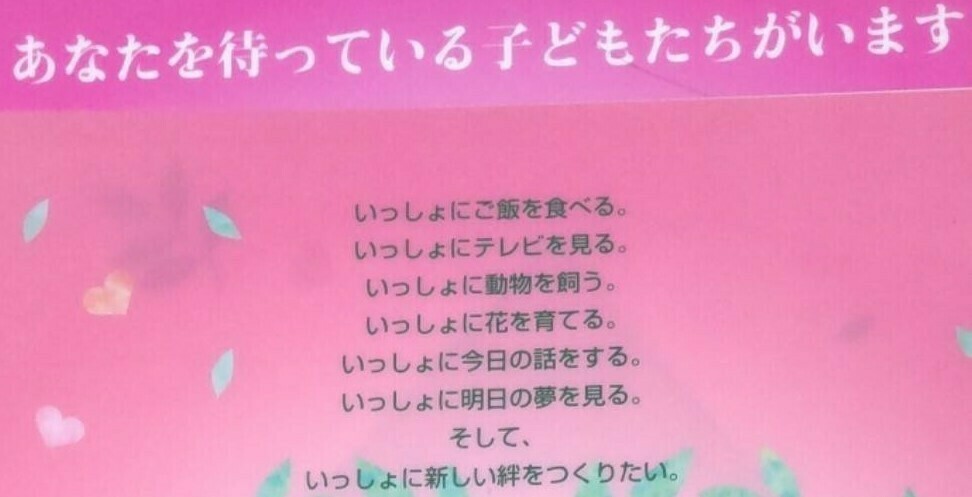 あなたを待っている子どもたちがいます
いっしょにご飯を食べる。
いっしょにテレビを見る。
いっしょに動物を飼う。
いっしょに花を育てる。
いっしょに今日の話をする。
いっしょに明日の夢を見る。
そして、
いっしょに新しい絆をつくりたい。